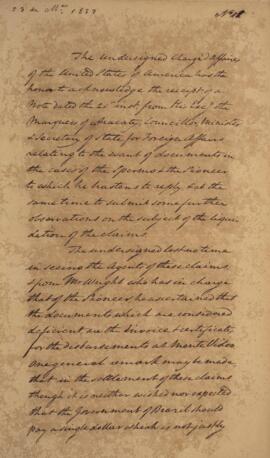 23 de M.ço 1832
The Undersigned Chargé d'Affaires
of the United States of America has the
honor to acknowledge the receipt of a
Note dated the inst. from His Exc.y the
Marquess of Aracaty, Councillor, Minister
& Secretary of State for Foreign Affairs
relating to the want of documents in
the cases of the Spermo & the Pioneer
to which he hastens to reply & at the
same time to submit some further
observations on the subject of the liqui-
dation of the claims.
The undersigned lost no time
in seeing the Agents of these claims,
upon Mr Wright who has in charge
that of the Pioneer he ascertained that
the documents which are considered
deficient are the Invoice & certificate
for the disbursements at Monte Video
One general remark may be made,
that in the settlement of these claims
though it is neither wished nor expected
that the Government of Brazil should
pay a single dollar which is not justly